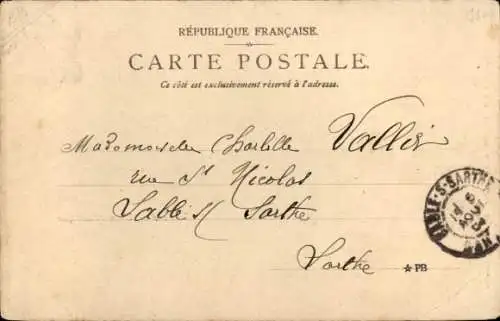 RÉPUBLIQUE FRANÇAISE.
CARTE POSTALE.
Ce côté est exclusivement réservé à l'adresse.
Mademoiselle Vallier
rue St Nicolas
Sablé s/ Sarthe
Sarthe
★PB
SABLÉ-S-SARTHE
6
AOUT